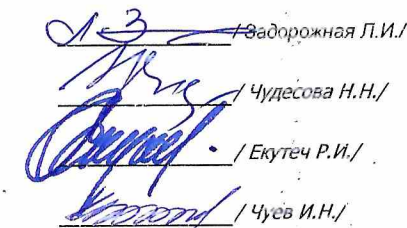 / Задорожная Л.И./
/ Чудесова Н.Н./
/ Екутеч Р.И./
/ Чуев И.Н./